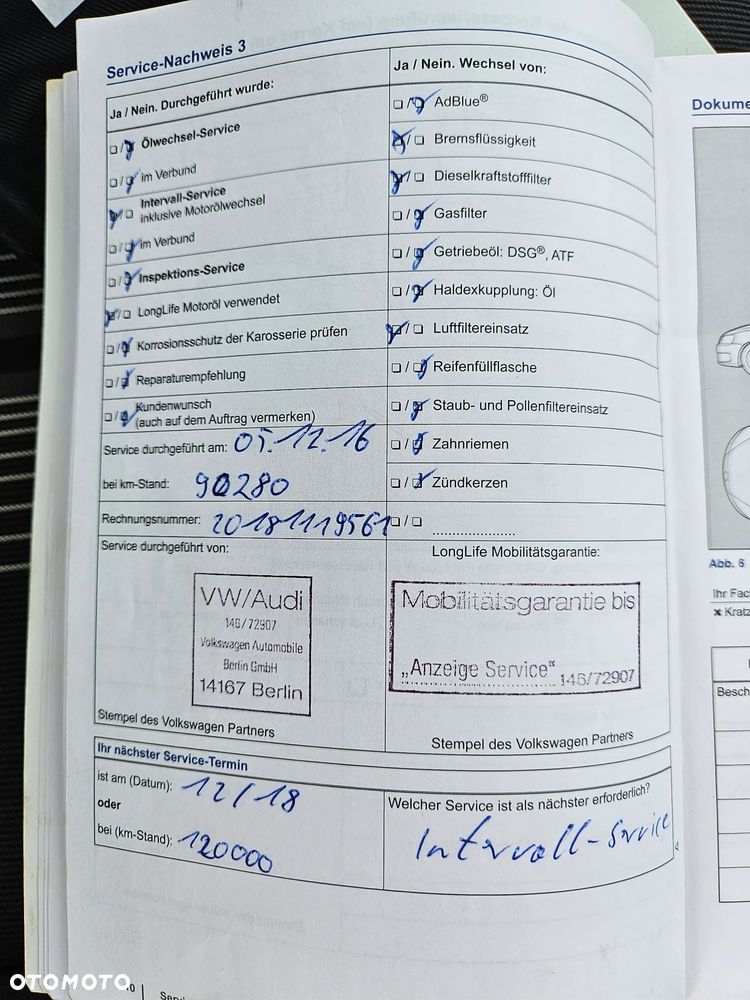 Service-Nachweis 3
Ja / Nein. Durchgeführt wurde:
❏/❏ Ölwechsel-Service
❏/❏ im Verbund
❏/❏ Intervall-Service
inklusive Motorölwechsel
❏/❏ im Verbund
❏/❏ Inspektions-Service
❏/❏ LongLife Motoröl verwendet
❏/❏ Korrosionsschutz der Karosserie prüfen
❏/❏ Reparaturempfehlung
❏/❏ Kundenwunsch
(auch auf dem Auftrag vermerken)
Service durchgeführt am: 05.12.16
bei km-Stand: 90280
Rechnungsnummer: 20181119561
Service durchgeführt von:
VW/Audi
146/72907
Volkswagen Automobile
Berlin GmbH
14167 Berlin
Stempel des Volkswagen Partners
Ja / Nein. Wechsel von:
❏/❏ AdBlue®
❏/❏ Bremsflüssigkeit
❏/❏ Dieselkraftstofffilter
❏/❏ Gasfilter
❏/❏ Getriebeöl: DSG®, ATF
❏/❏ Haldexkupplung: Öl
❏/❏ Luftfiltereinsatz
❏/❏ Reifenfüllflasche
❏/❏ Staub- und Pollenfiltereinsatz
❏/❏ Zahnriemen
❏/❏ Zündkerzen
❏/❏ ....................
LongLife Mobilitätsgarantie:
Mobilitätsgarantie bis
„Anzeige Service“
146/72907
Stempel des Volkswagen Partners
Ihr nächster Service-Termin
ist am (Datum): 12/18
oder
bei (km-Stand): 120000
Welcher Service ist als nächster erforderlich?
Intervall-Service
Dokume
Abb. 6
Ihr Fac
✖ Kratz
Besch
OTOMOTO